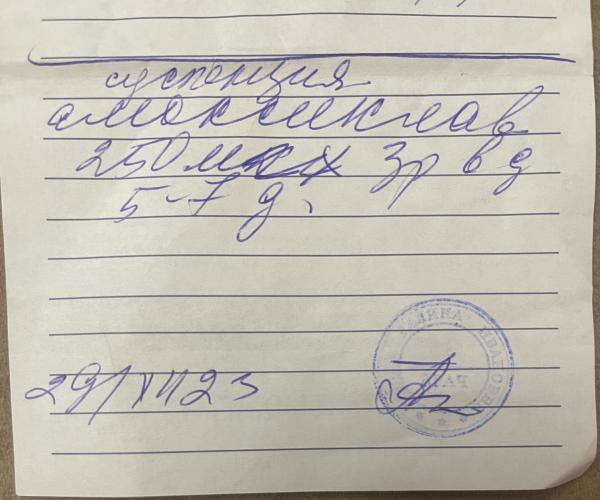 суспензия
амоксиклав
250 мг х 3р в д
5-7 д.
29/XII 23
ГАЛИНА ИВАНОВНА
ВРАЧ